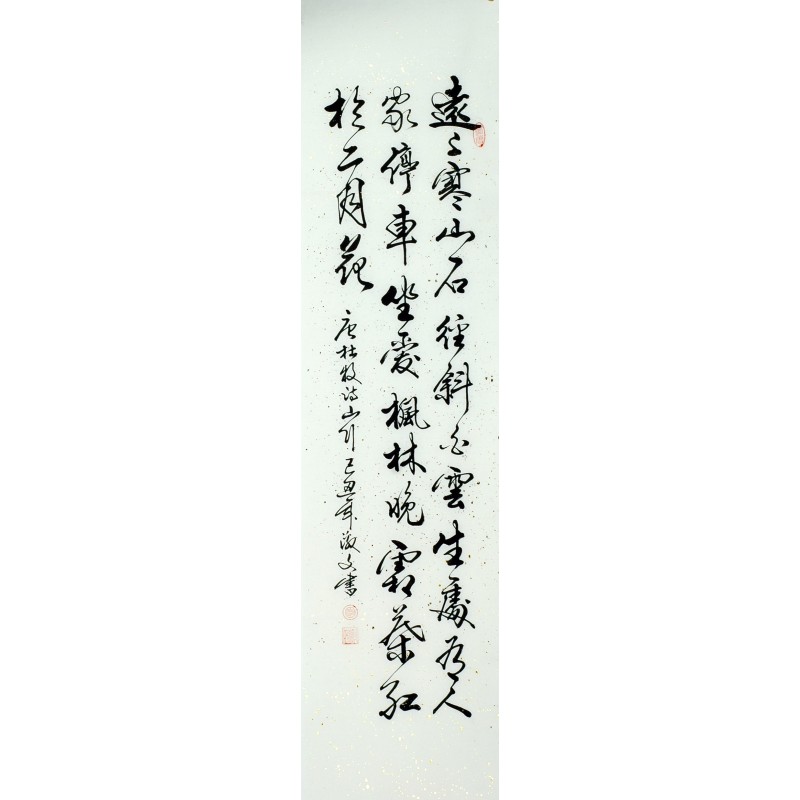 遠上寒山石徑斜白雲生處有人
家停車坐愛楓林晚霜葉紅
於二月花 唐杜牧詩山行己丑年文書